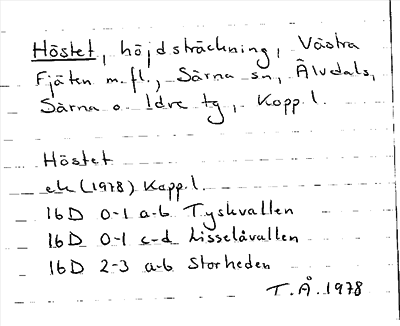 Höstet, höjdsträckning, Västra
Fjäten m.fl., Särna sn, Älvdals,
Särna o. Idre tg, Kopp l.
Höstet
ek (1978) Kopp l.
16D 0-1 a-b Tyskvallen
16D 0-1 c-d Lisselåvallen
16D 2-3 a-b Storheden
T.Å. 1978